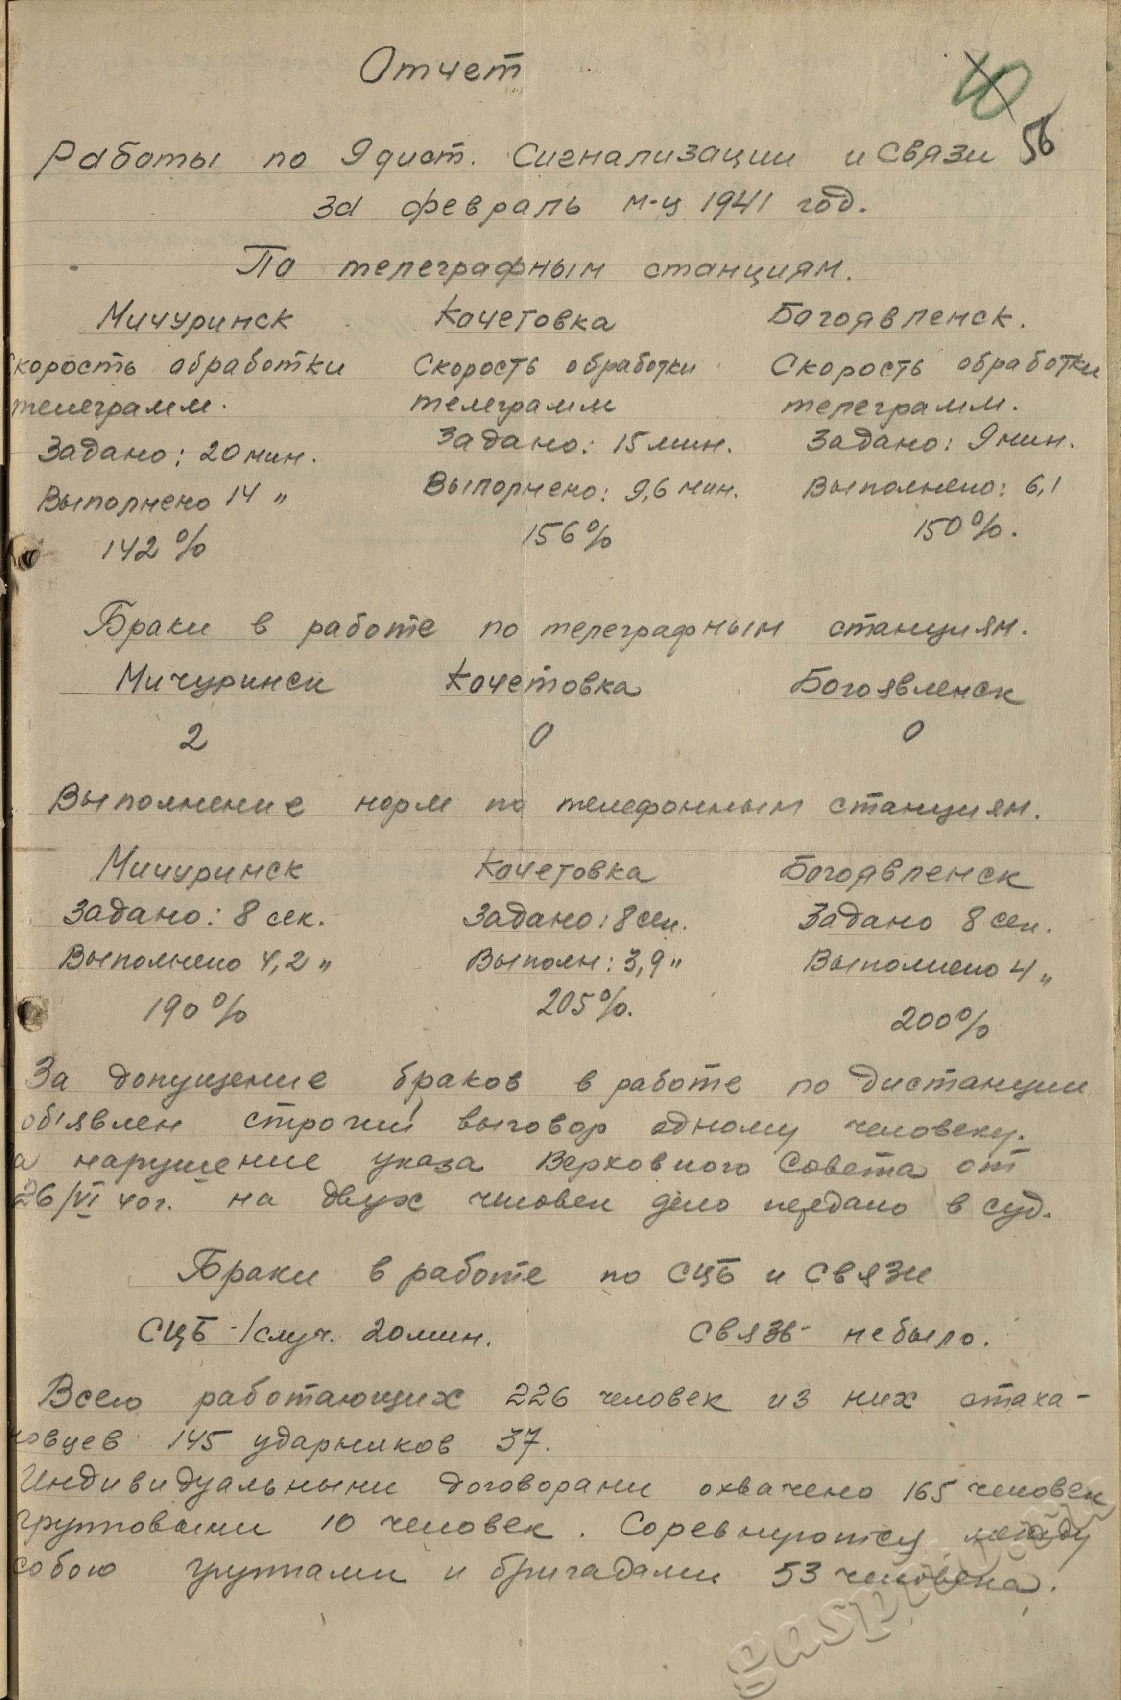 Отчет
40
56
Работы по 9 дист. Сигнализации и Связи
за февраль м-ц 1941 год.
По телеграфным станциям.
Мичуринск Кочетовка Богоявленск.
Скорость обработки Скорость обработки Скорость обработки
телеграмм. телеграмм телеграмм.
Задано: 20 мин. Задано: 15 мин. Задано: 9 мин.
Выполнено 14 " Выполнено: 9,6 мин. Выполнено: 6,1
142% 156% 150%.
Браки в работе по телеграфным станциям.
Мичуринск Кочетовка Богоявленск
2 0 0
Выполнение норм по телефонным станциям.
Мичуринск Кочетовка Богоявленск
Задано: 8 сек. Задано: 8 сек. Задано 8 сек.
Выполнено 4,2 " Выполн: 3,9 " Выполнено 4 "
190% 205%. 200%
За допущение браков в работе по дистанции
обявлен строгий выговор одному человеку.
а нарушение указа Верховного Совета от
26/VI 40 г. на двух человек дело передано в суд.
Браки в работе по СЦБ и связи
СЦБ - 1 случ. 20 мин. Связь - не было.
Всего работающих 226 человек из них стаха-
новцев 145 ударников 37.
Индивидуальными договорами охвачено 165 человек
групповыми 10 человек. Соревнуются между
собою группами и бригадами 53 человека.
gaspito.ru